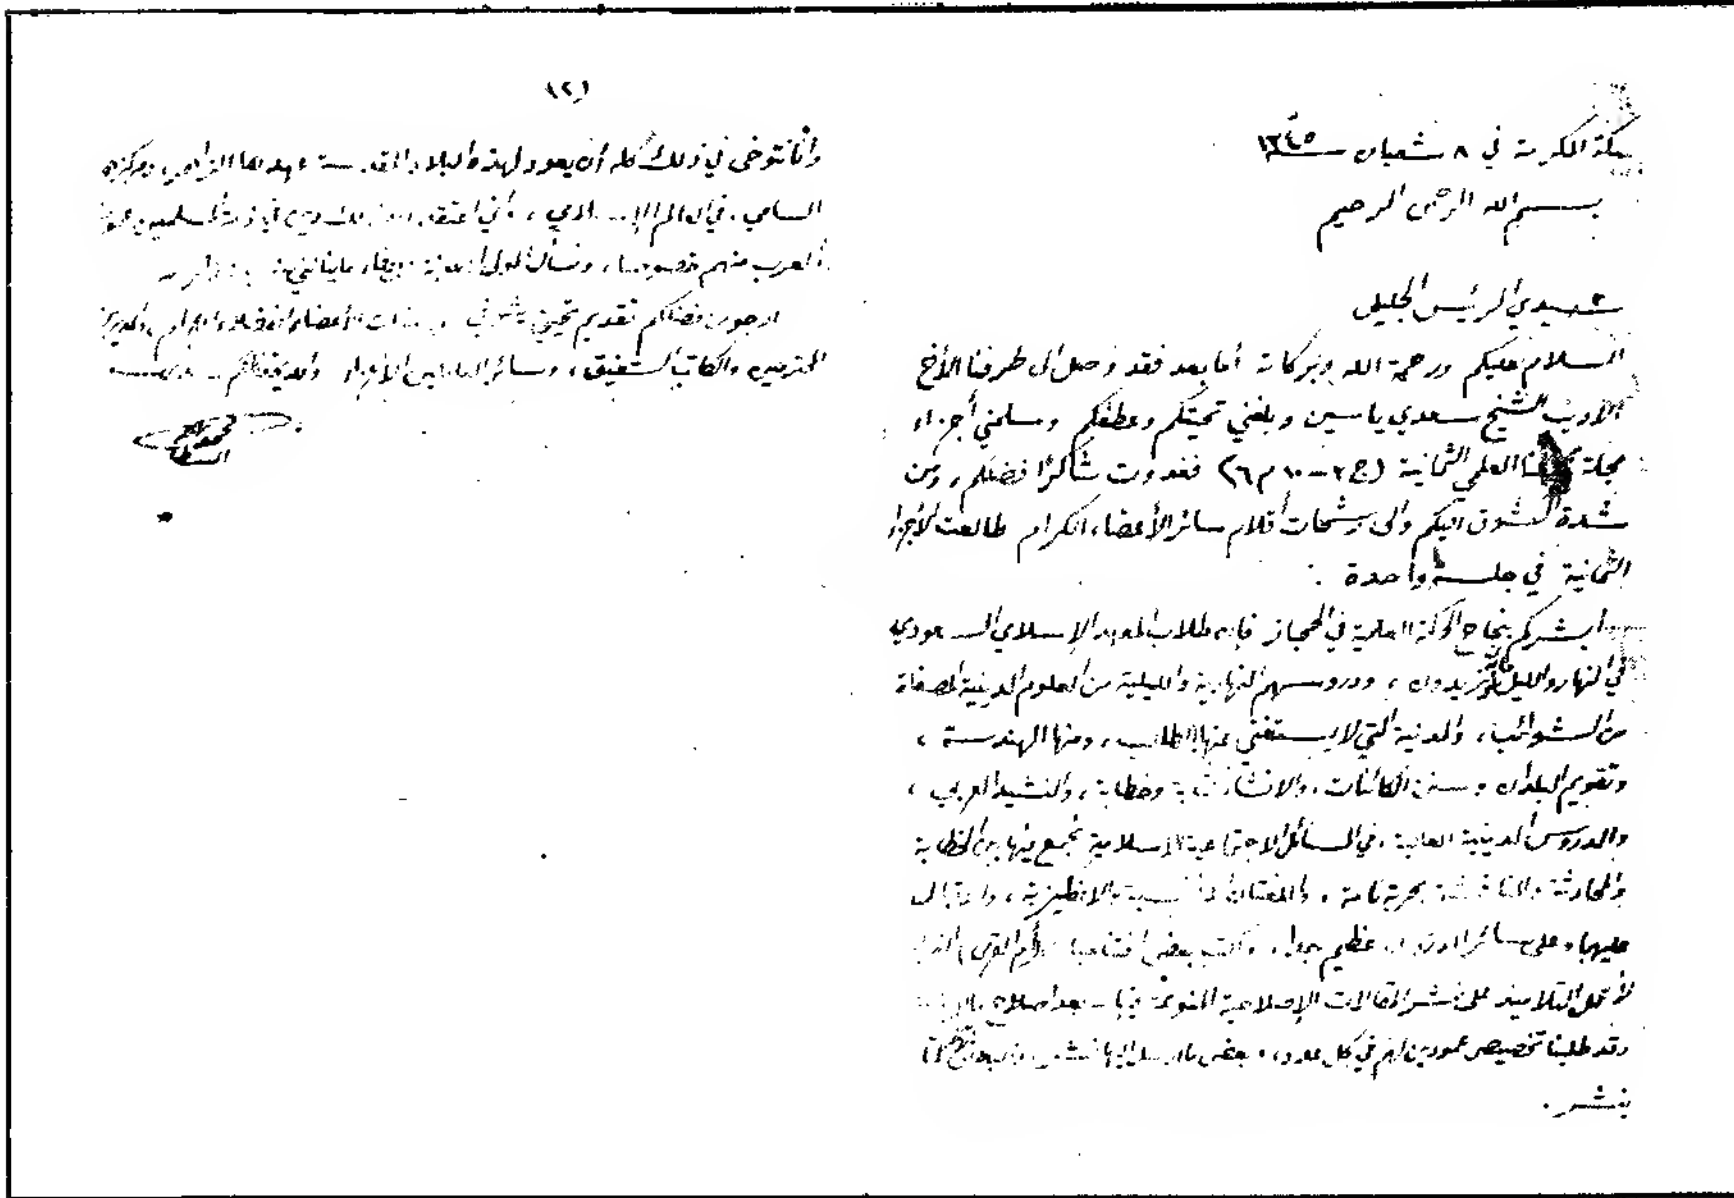 مكة المكرمة في ٨ شعبان سنة ١٣٤٥
بسم الله الرحمن الرحيم
سيدي الرئيس الجليل
السلام عليكم ورحمة الله وبركاته أما بعد فقد وصل الى طرفنا الأخ
الأديب الشيخ سعدي ياسين وبلغني تحيتكم وعطفكم وسلمني أجزاء
مجلة مجمعنا العلمي الثمانية (ج ٣ - ١٠ م ٦) فغدوت شاكرًا فضلكم، ومن
شدة الشوق اليكم والى رشحات أقلام سائر الأعضاء الكرام طالعت الأجزاء
الثمانية في جلسة واحدة .
وأبشركم بنجاح الحركة العلمية في الحجاز فإن طلاب المعهد الإسلامي السعودي
في النهار والليل يزيدون، ودروسهم النهارية والليلية من العلوم الدينية المصفاة
من الشوائب، والمدنية التي لا يستغني عنها الطالب، ومنها الهندسة،
وتقويم البلدان وسنن الكائنات، والانشاء كتابة وخطابة، والنشيد العربي،
والدروس الدينية العالية، في المسائل الاجتماعية الاسلامية نجمع فيها بين الخطابة
والمحادثة والمناقشة بحرية تامة، واللغتان الفرنسية والانكليزية، والاقبال
عليها وعلى سائر الدروس عظيم جدا، وكتب بعض افتتاحيات (أم القرى)
لأحمل التلاميذ على نشر المقالات الإصلاحية المتنوعة فيها بعد اصلاح
وقد طلبنا تخصيص عمودين لهم في كل عدد، وبعض ما أرسل إليها نشر،
ينشر.
(٢)
وانا نتوخى في ذلك كله أن يعود لهذه البلاد المقدسة عهدها الزاهر، ومركزها
السامي، في العالم الإسلامي، واني أعتقد أن ذلك دين في ذمة المسلمين
العرب منهم خصوصا، ونسأل المولى
ارجو من فضلكم تقديم تحيتي وشوقي الأعضاء الفضلاء الكرام،
المحترمين والكاتب الشفيق، وسائر العاملين الأبرار والله يحفظكم
محمد